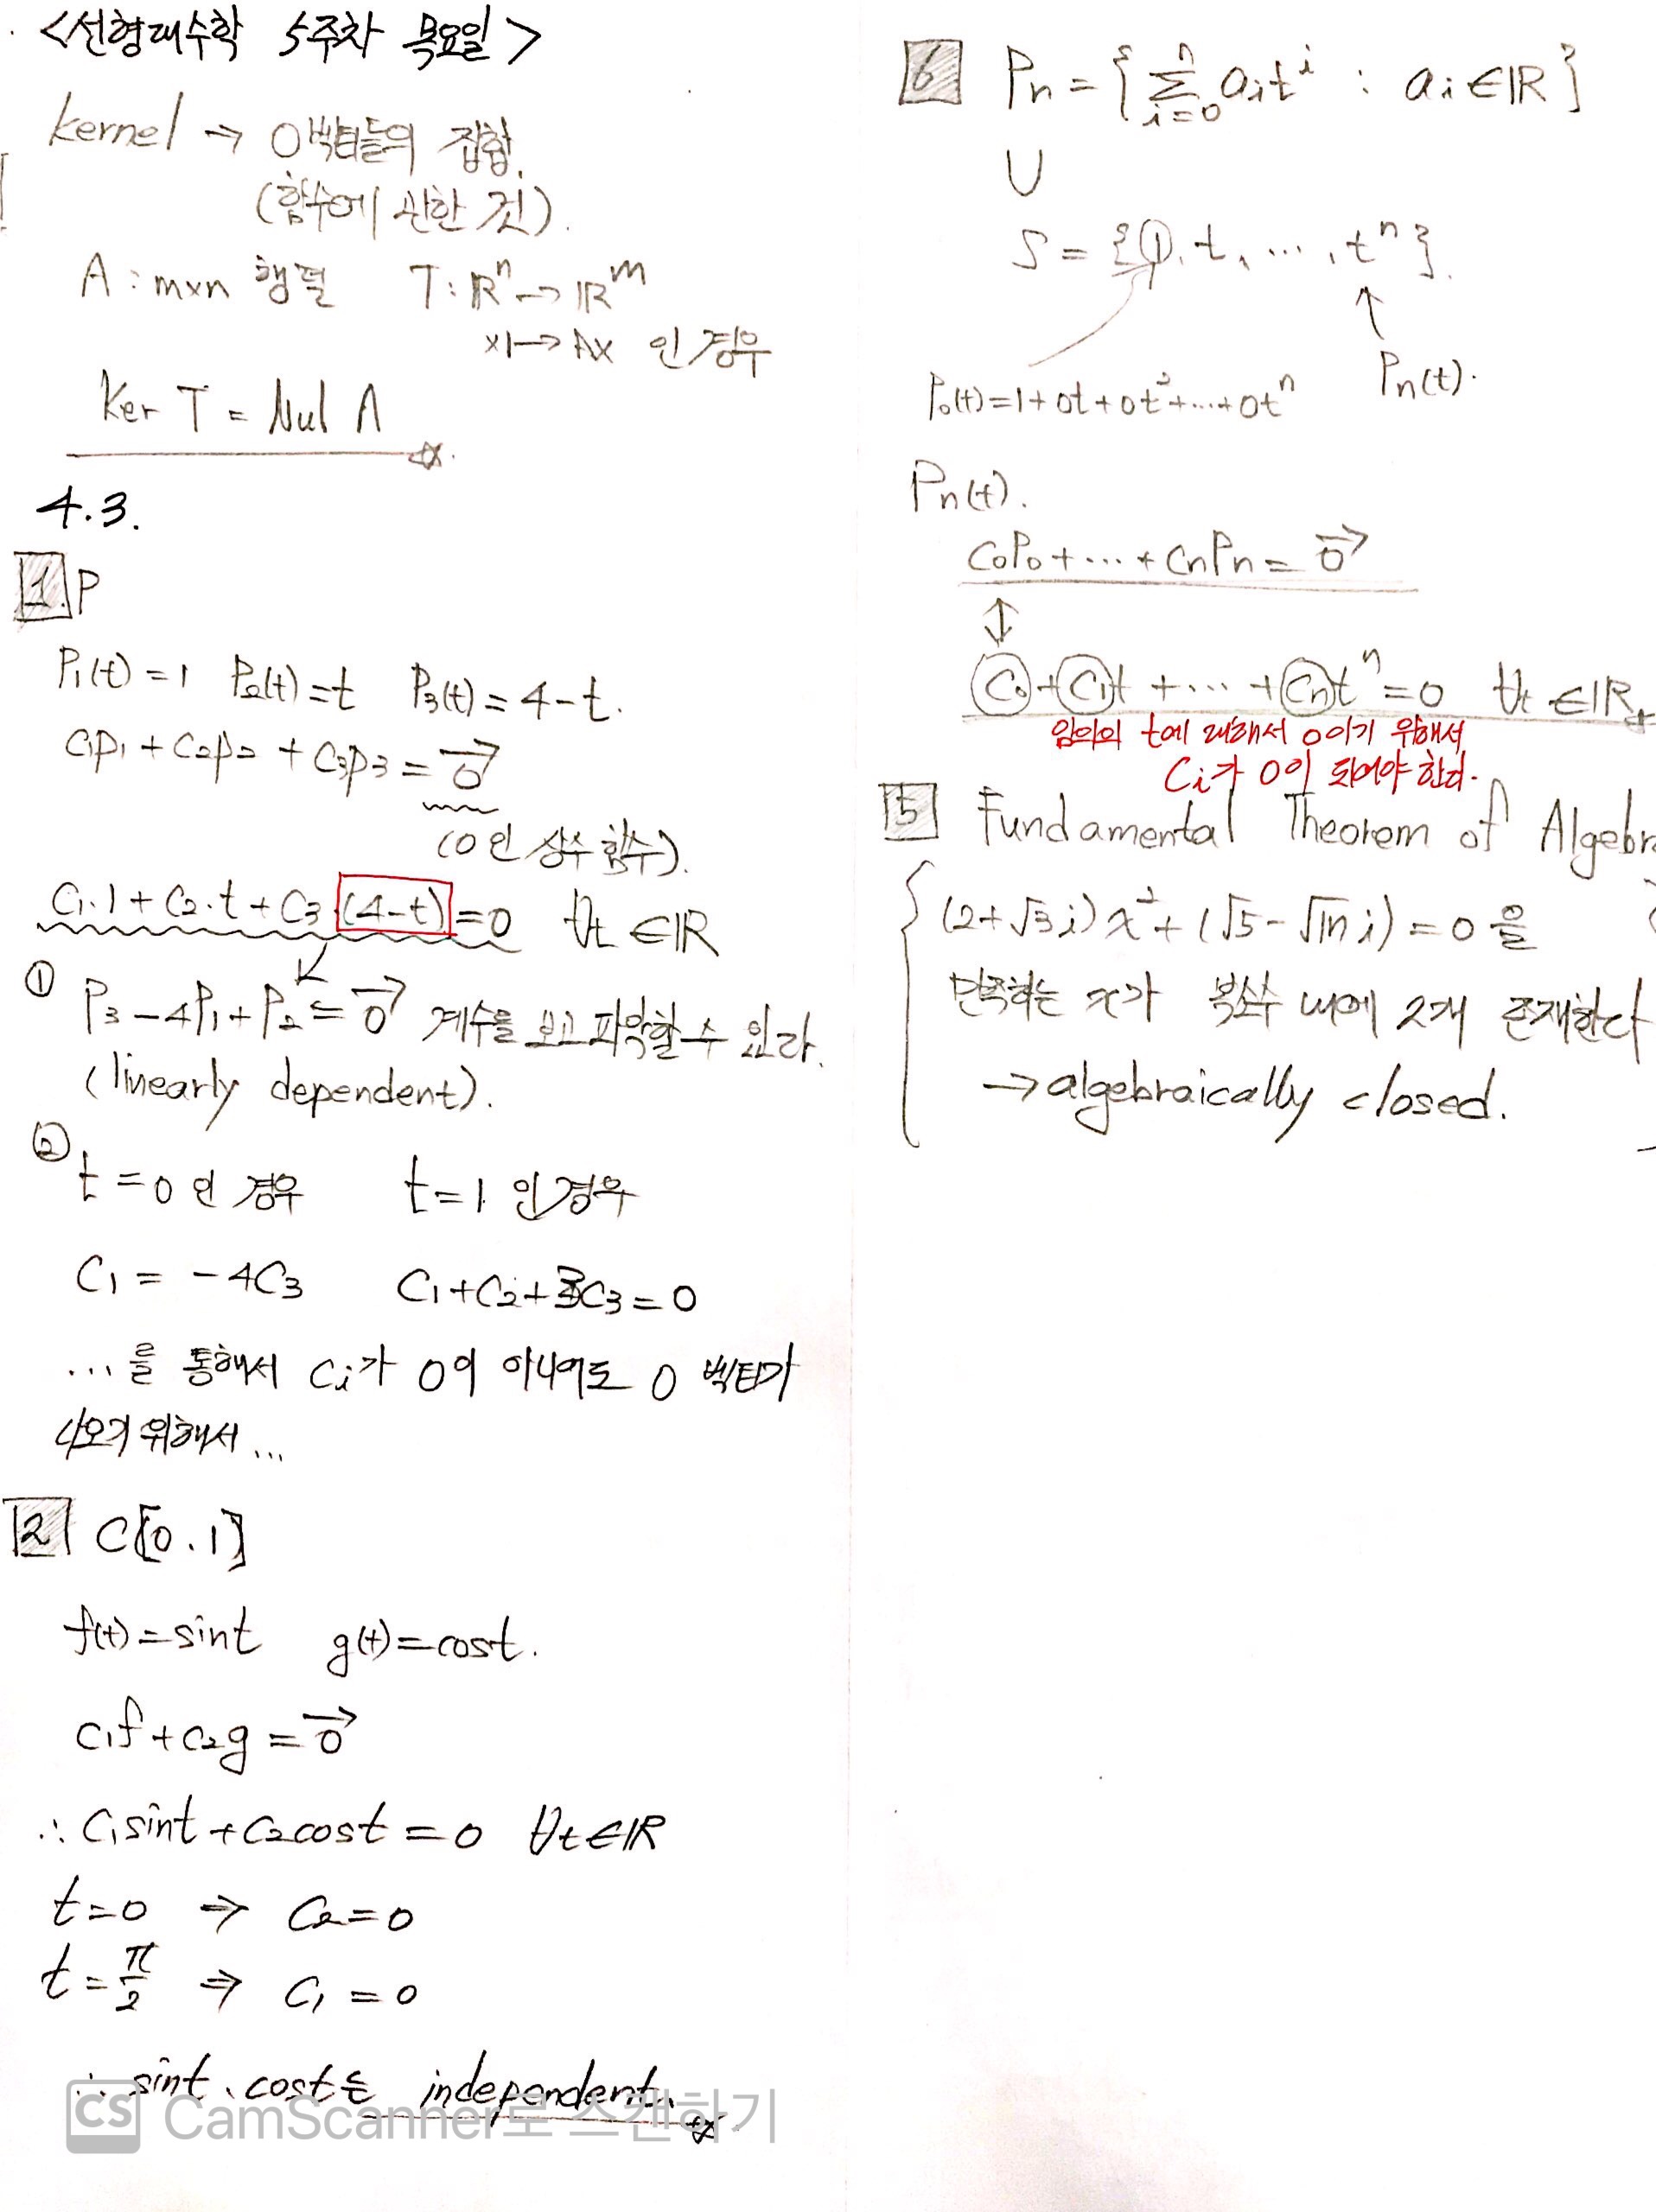 <선형대수학 5주차 목요일>
kernel → 0벡터들의 집합.
(함수에 관한 것).
A : m×n 행렬 T : ℝⁿ → ℝᵐ
x ↦ Ax 인 경우
Ker T = Nul A
4.3.
1. P
P₁(t) = 1 P₂(t) = t P₃(t) = 4-t.
C₁p₁ + C₂p₂ + C₃p₃ = 0⃗
(0인 상수 함수).
C₁·1 + C₂·t + C₃·(4-t) = 0 ∀t ∈ℝ
① P₃ - 4P₁ + P₂ = 0⃗ 계수를 보고 파악할 수 있다.
(linearly dependent).
② t = 0 인 경우 t = 1 인 경우
C₁ = -4C₃ C₁+C₂+3C₃ = 0
...를 통해서 Cᵢ가 0이 아니여도 0 벡터가
나오기 위해서...
2 C[0.1]
f(t) = sint g(t) = cost.
C₁f + C₂g = 0⃗
∴ C₁sint + C₂cost = 0 ∀t∈ℝ
t=0 ⇒ C₂=0
t=π/2 ⇒ C₁=0
∴ sint、cost는 independent.
CS CamScanner로 스캔하기
6 Pₙ = { ∑ⁿᵢ₌₀ aᵢtⁱ : aᵢ∈ℝ }
∪
S = {1, t, ..., tⁿ}.
↑
Pₙ(t).
P₀(t) = 1+0t+0t²+...+0tⁿ
Pₙ(t).
C₀P₀+...+CₙPₙ = 0⃗
↕
C₀+C₁t+...+Cₙtⁿ=0 ∀t ∈ℝ
임의의 t에 대해서 0이기 위해서
Cᵢ가 0이 되어야 한다.
5 Fundamental Theorem of Algebra
(2+√3i)x²+(√5-√π i)=0 을
만족하는 x가 복소수 내에 2개 존재한다
→ algebraically closed.